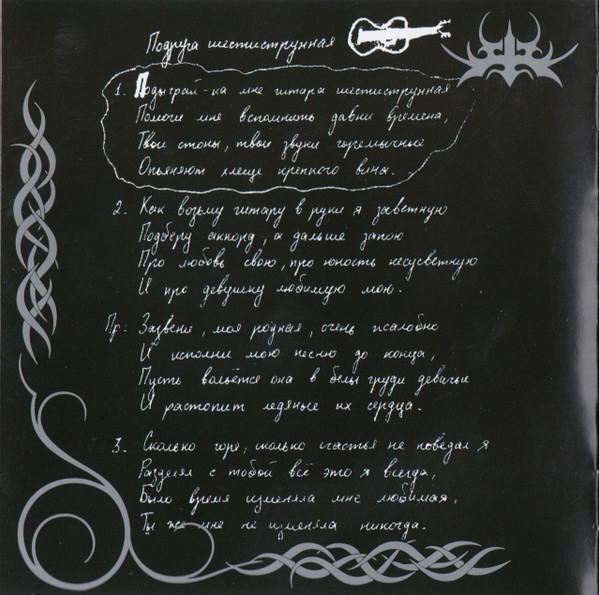 Подруга шестиструнная
1. Подыграй-ка мне гитара шестиструнная
Помоги мне вспомнить давни времена,
Твои стоны, твои звуки горемычные
Опьяняют хлеще крепкого вина.
2. Как возьму гитару в руки я заветную
Подберу аккорд, а дальше запою
Про любовь свою, про юность несусветную
И про девушку любимую мою.
Пр: Зазвени, моя родная, очень жалобно
И исполни мою песню до конца,
Пусть вольётся она в белы груди девичьи
И растопит ледяные их сердца.
3. Сколько горя, сколько счастья не поведал я
Разделял с тобой всё это я всегда,
Было время изменяла мне любимая,
Ты же мне не изменяла никогда.